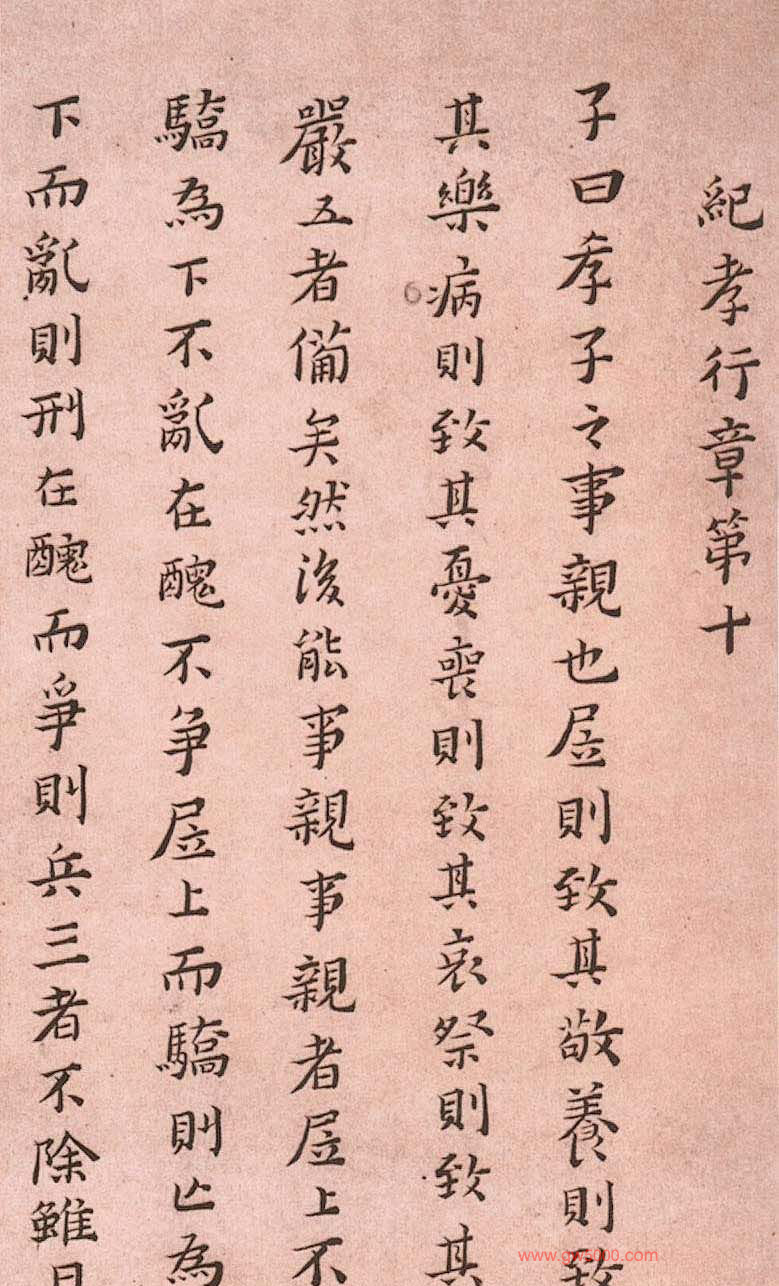 紀孝行章第十
子曰孝子之事親也居則致其敬養則致
其樂病則致其憂喪則致其哀祭則致其
嚴五者備矣然後能事親事親者居上不
驕為下不亂在醜不爭居上而驕則亡為
下而亂則刑在醜而爭則兵三者不除雖日
6